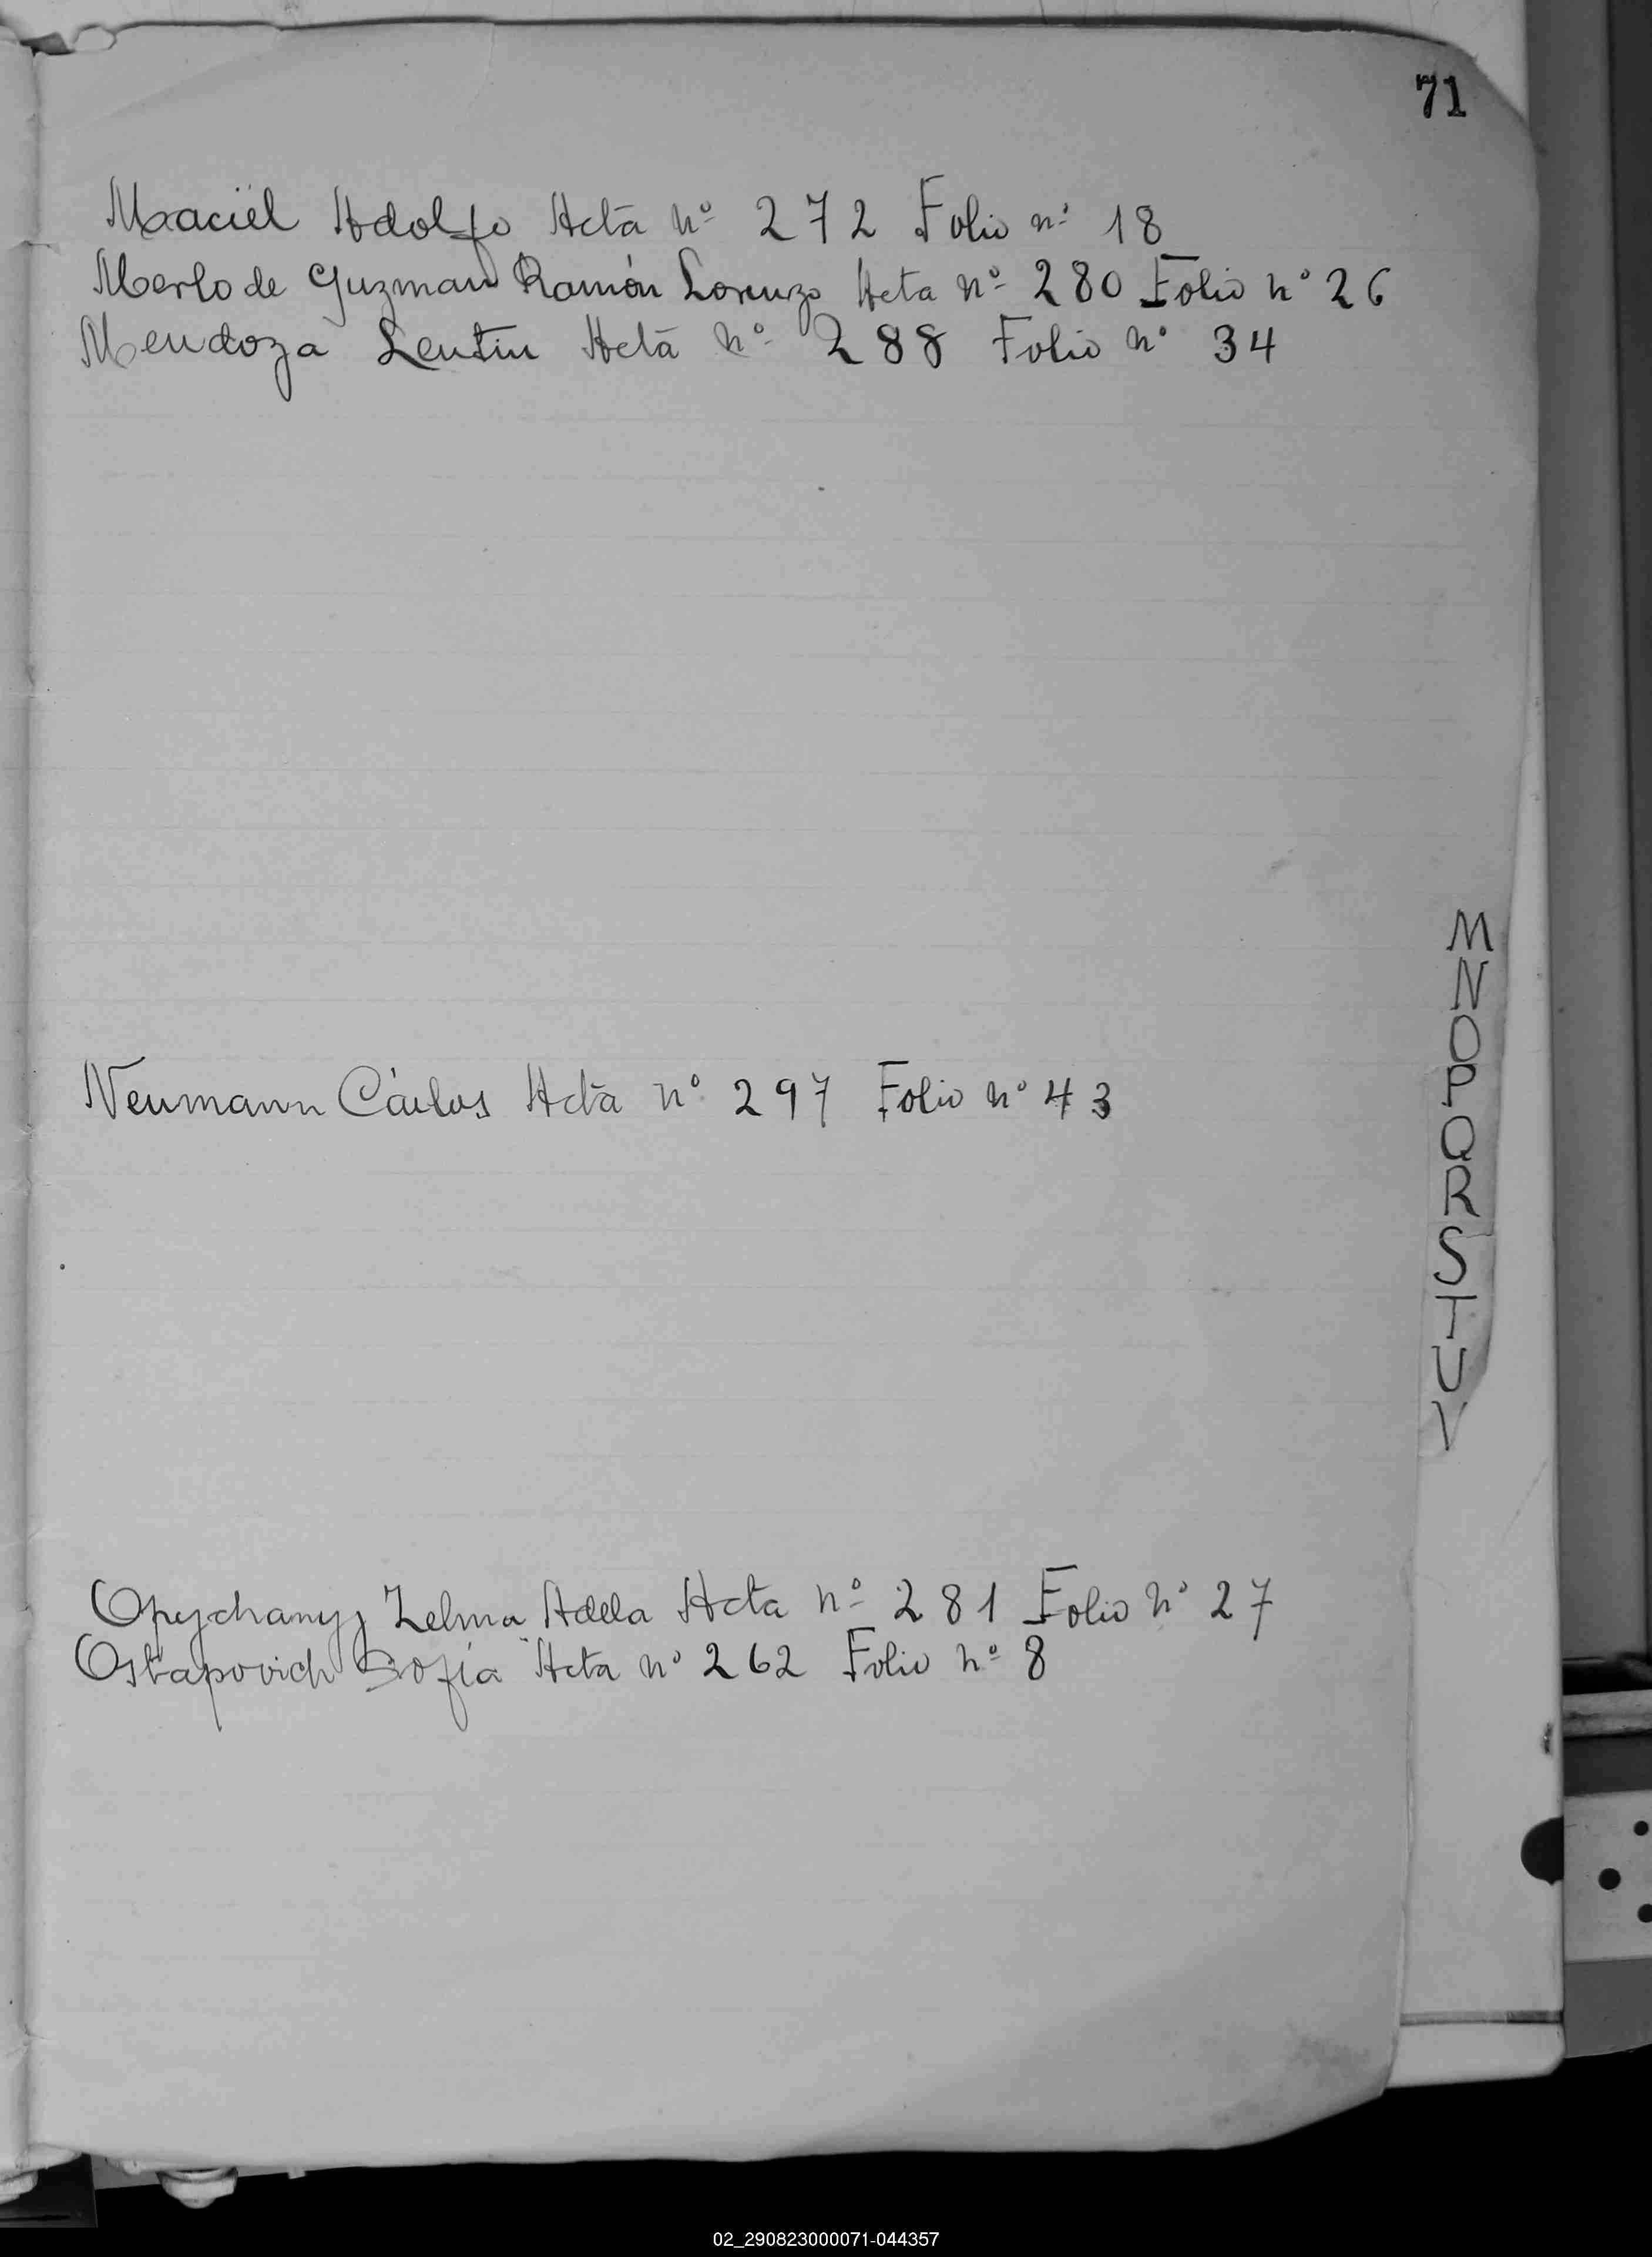 71
Maciel Adolfo Acta nº 272 Folio nº 18
Merlo de Guzman Ramón Lorenzo Acta nº 280 Folio nº 26
Mendoza Lentin Acta nº 288 Folio nº 34
M
N
O
P
Q
R
S
T
U
V
Neumann Cárlos Acta nº 297 Folio nº 43
Zelma Adela Acta nº 281 Folio nº 27
Ostapovich Sofía Acta nº 262 Folio nº 8
02_290823000071-044357